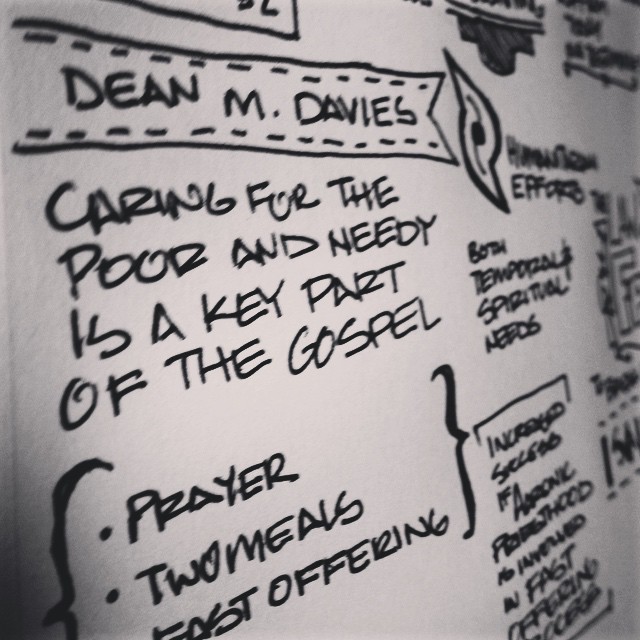 DEAN M. DAVIES
CARING FOR THE
POOR AND NEEDY
IS A KEY PART
OF THE GOSPEL
• PRAYER
• TWO MEALS
FAST OFFERING
EFFORTS
BOTH
TEMPORAL &
SPIRITUAL
NEEDS
INCREASED
SUCCESS
IF AARONIC
PRIESTHOOD
IS INVOLVED
IN FAST
OFFERING